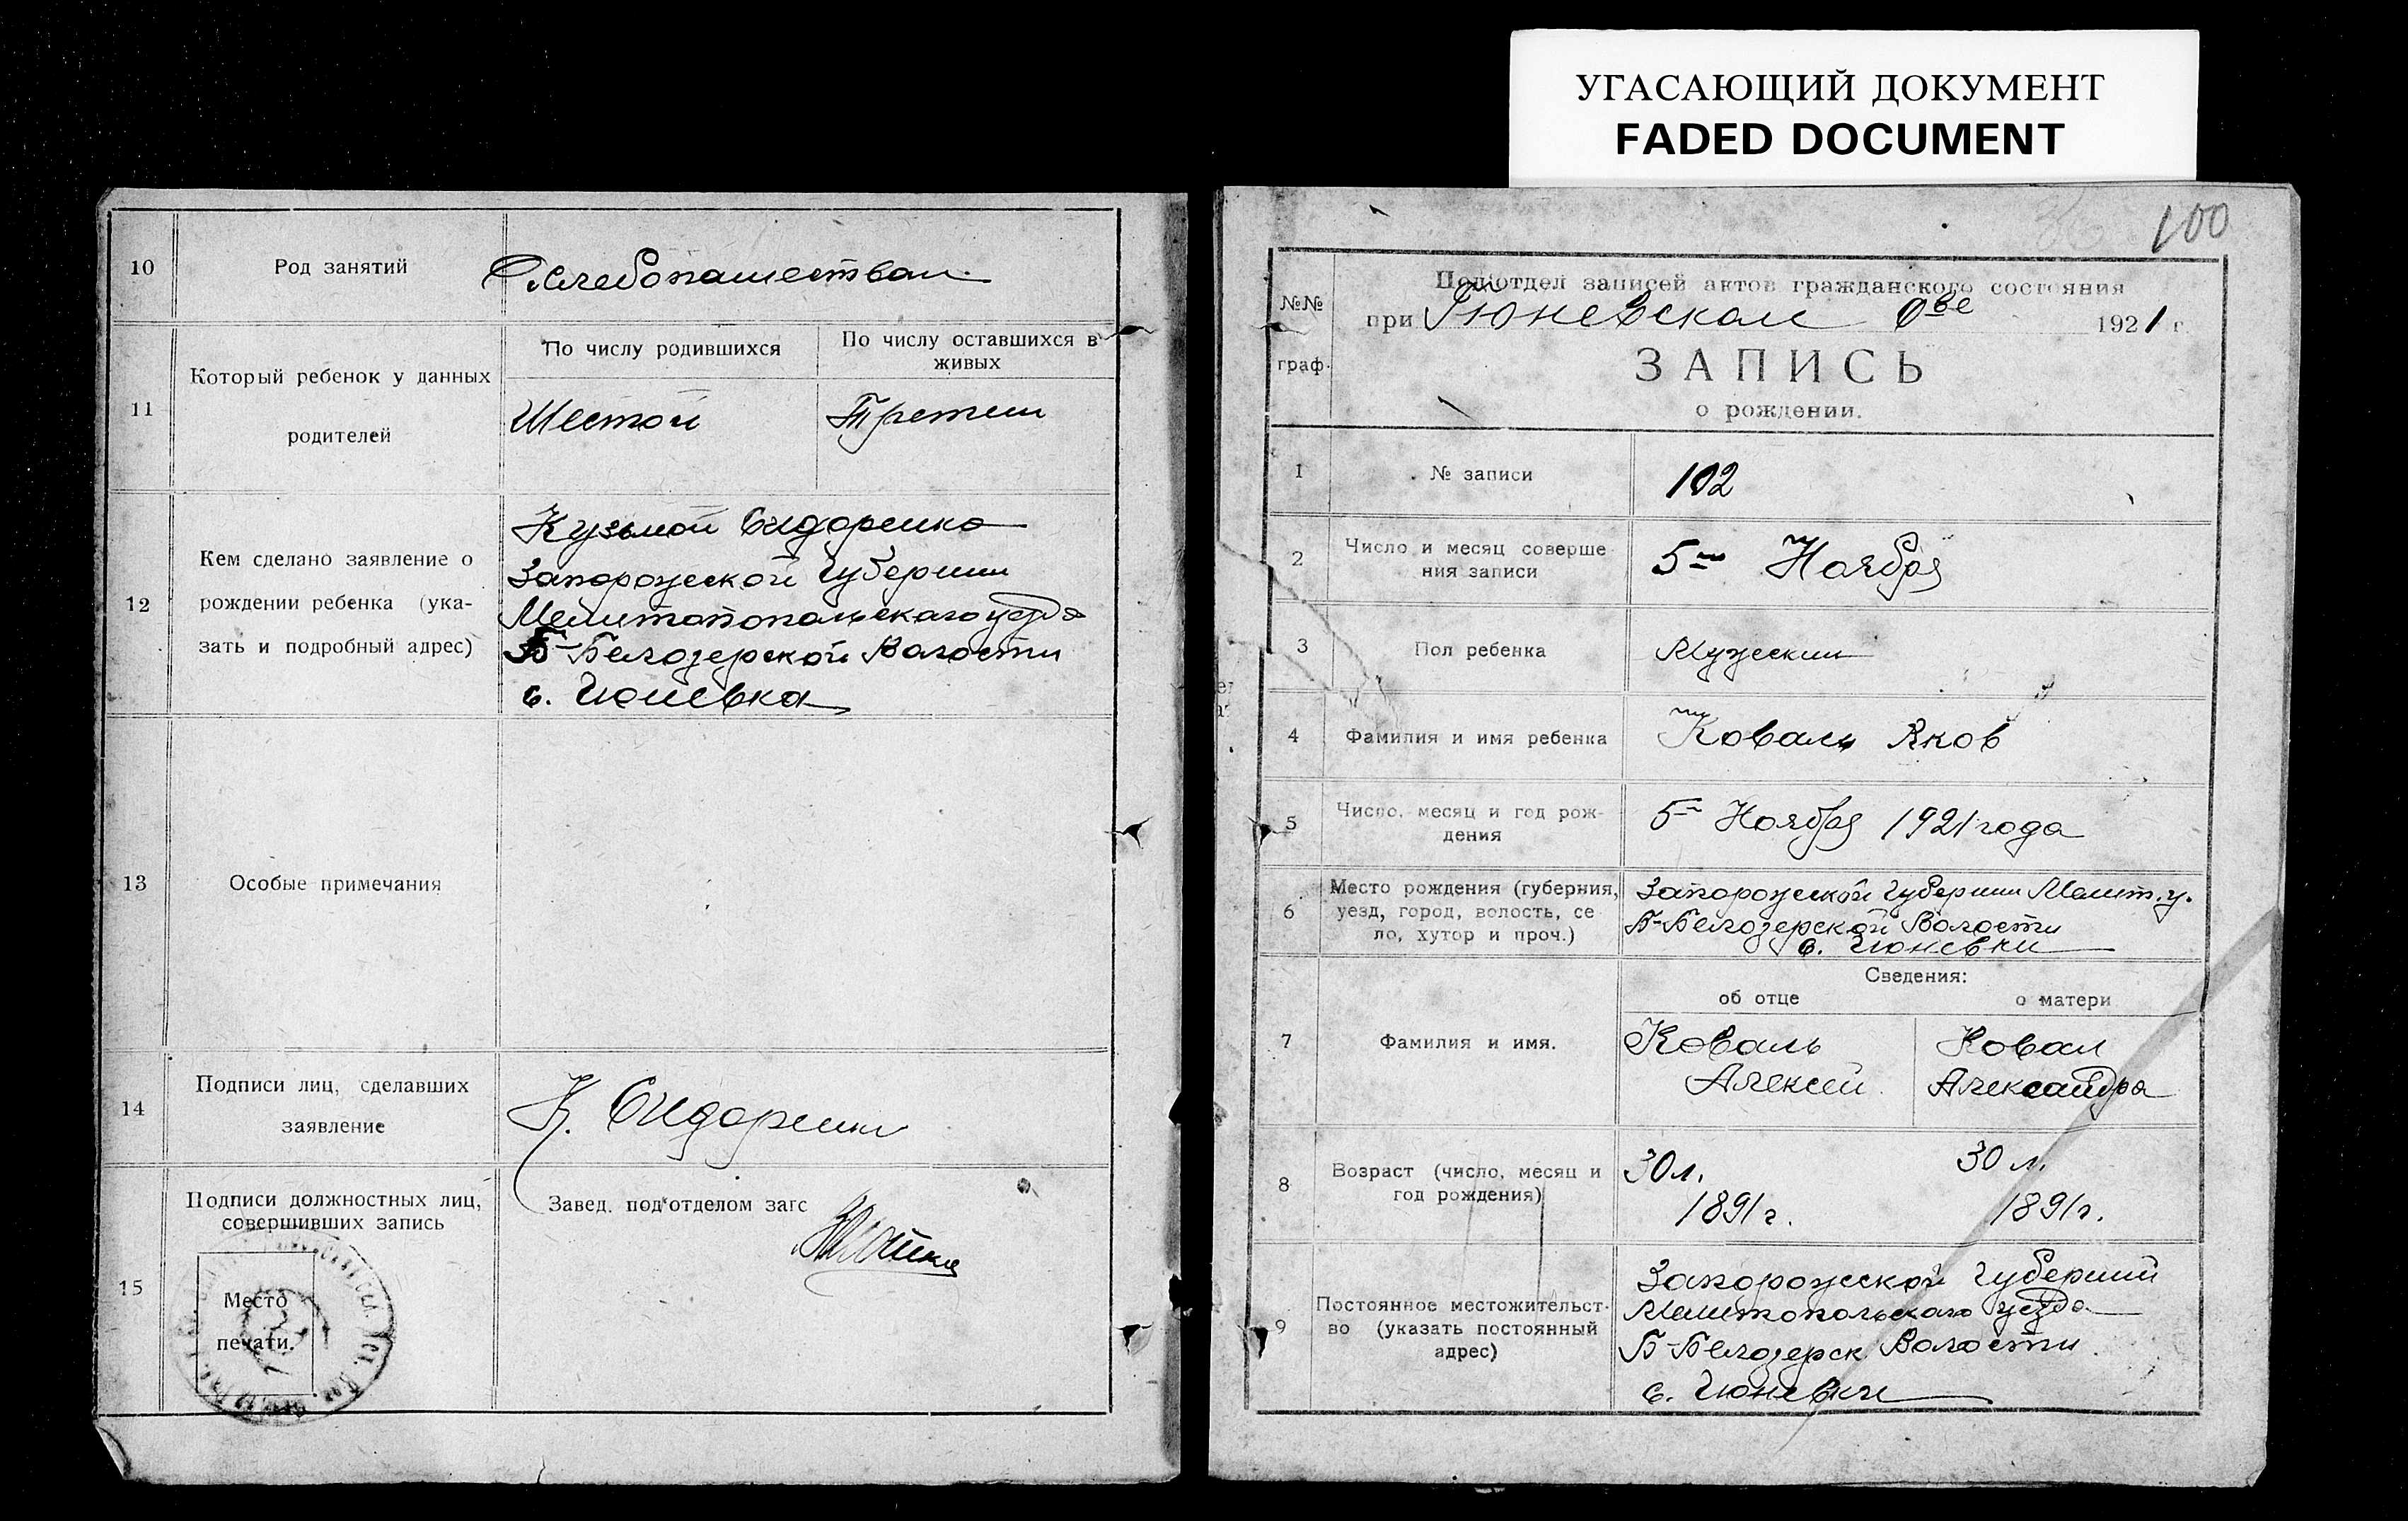 УГАСАЮЩИЙ ДОКУМЕНТ
FADED DOCUMENT
10
Род занятий
Хлебопашеством
11
Который ребенок у данных
родителей
По числу родившихся
По числу оставшихся в
живых
Шестой
Третий
12
Кем сделано заявление о
рождении ребенка (ука-
зать и подробный адрес)
Кузьмой Сидоренко
Запорожской Губернии
Мелитопопольскаго уезда
Б-Белозерской Волости
с. Гюневка
13
Особые примечания
14
Подписи лиц, сделавших
заявление
К. Сидоренко
15
Подписи должностных лиц,
совершивших запись
Место
печати.
Завед. под'отделом загс
100
№№
граф.
Под'отдел записей актов гражданского состояния
при Гюневском 1921 г.
ЗАПИСЬ
о рождении.
1
№ записи
102
2
Число и месяц соверше
ния записи
5го Ноября
3
Пол ребенка
Мужеский
4
Фамилия и имя ребенка
Коваль Яков
5
Число, месяц и год рож-
дения
5го Ноября 1921 года
6
Место рождения (губерния,
уезд, город, волость, се
ло, хутор и проч.)
Запорожской Губернии Мелит. у.
Б-Белозерской Волости
с. Гюневки
Сведения:
об отце
о матери
7
Фамилия и имя.
Коваль
Алексей
Ковал
Александра
8
Возраст (число, месяц и
год рождения)
30 л.
1891 г.
30 л.
1891 г.
9
Постоянное местожительст-
во (указать постоянный
адрес)
Запорожской Губернии
Мелитопольскаго уезда
Б-Белозерск Волости
с. Гюневки